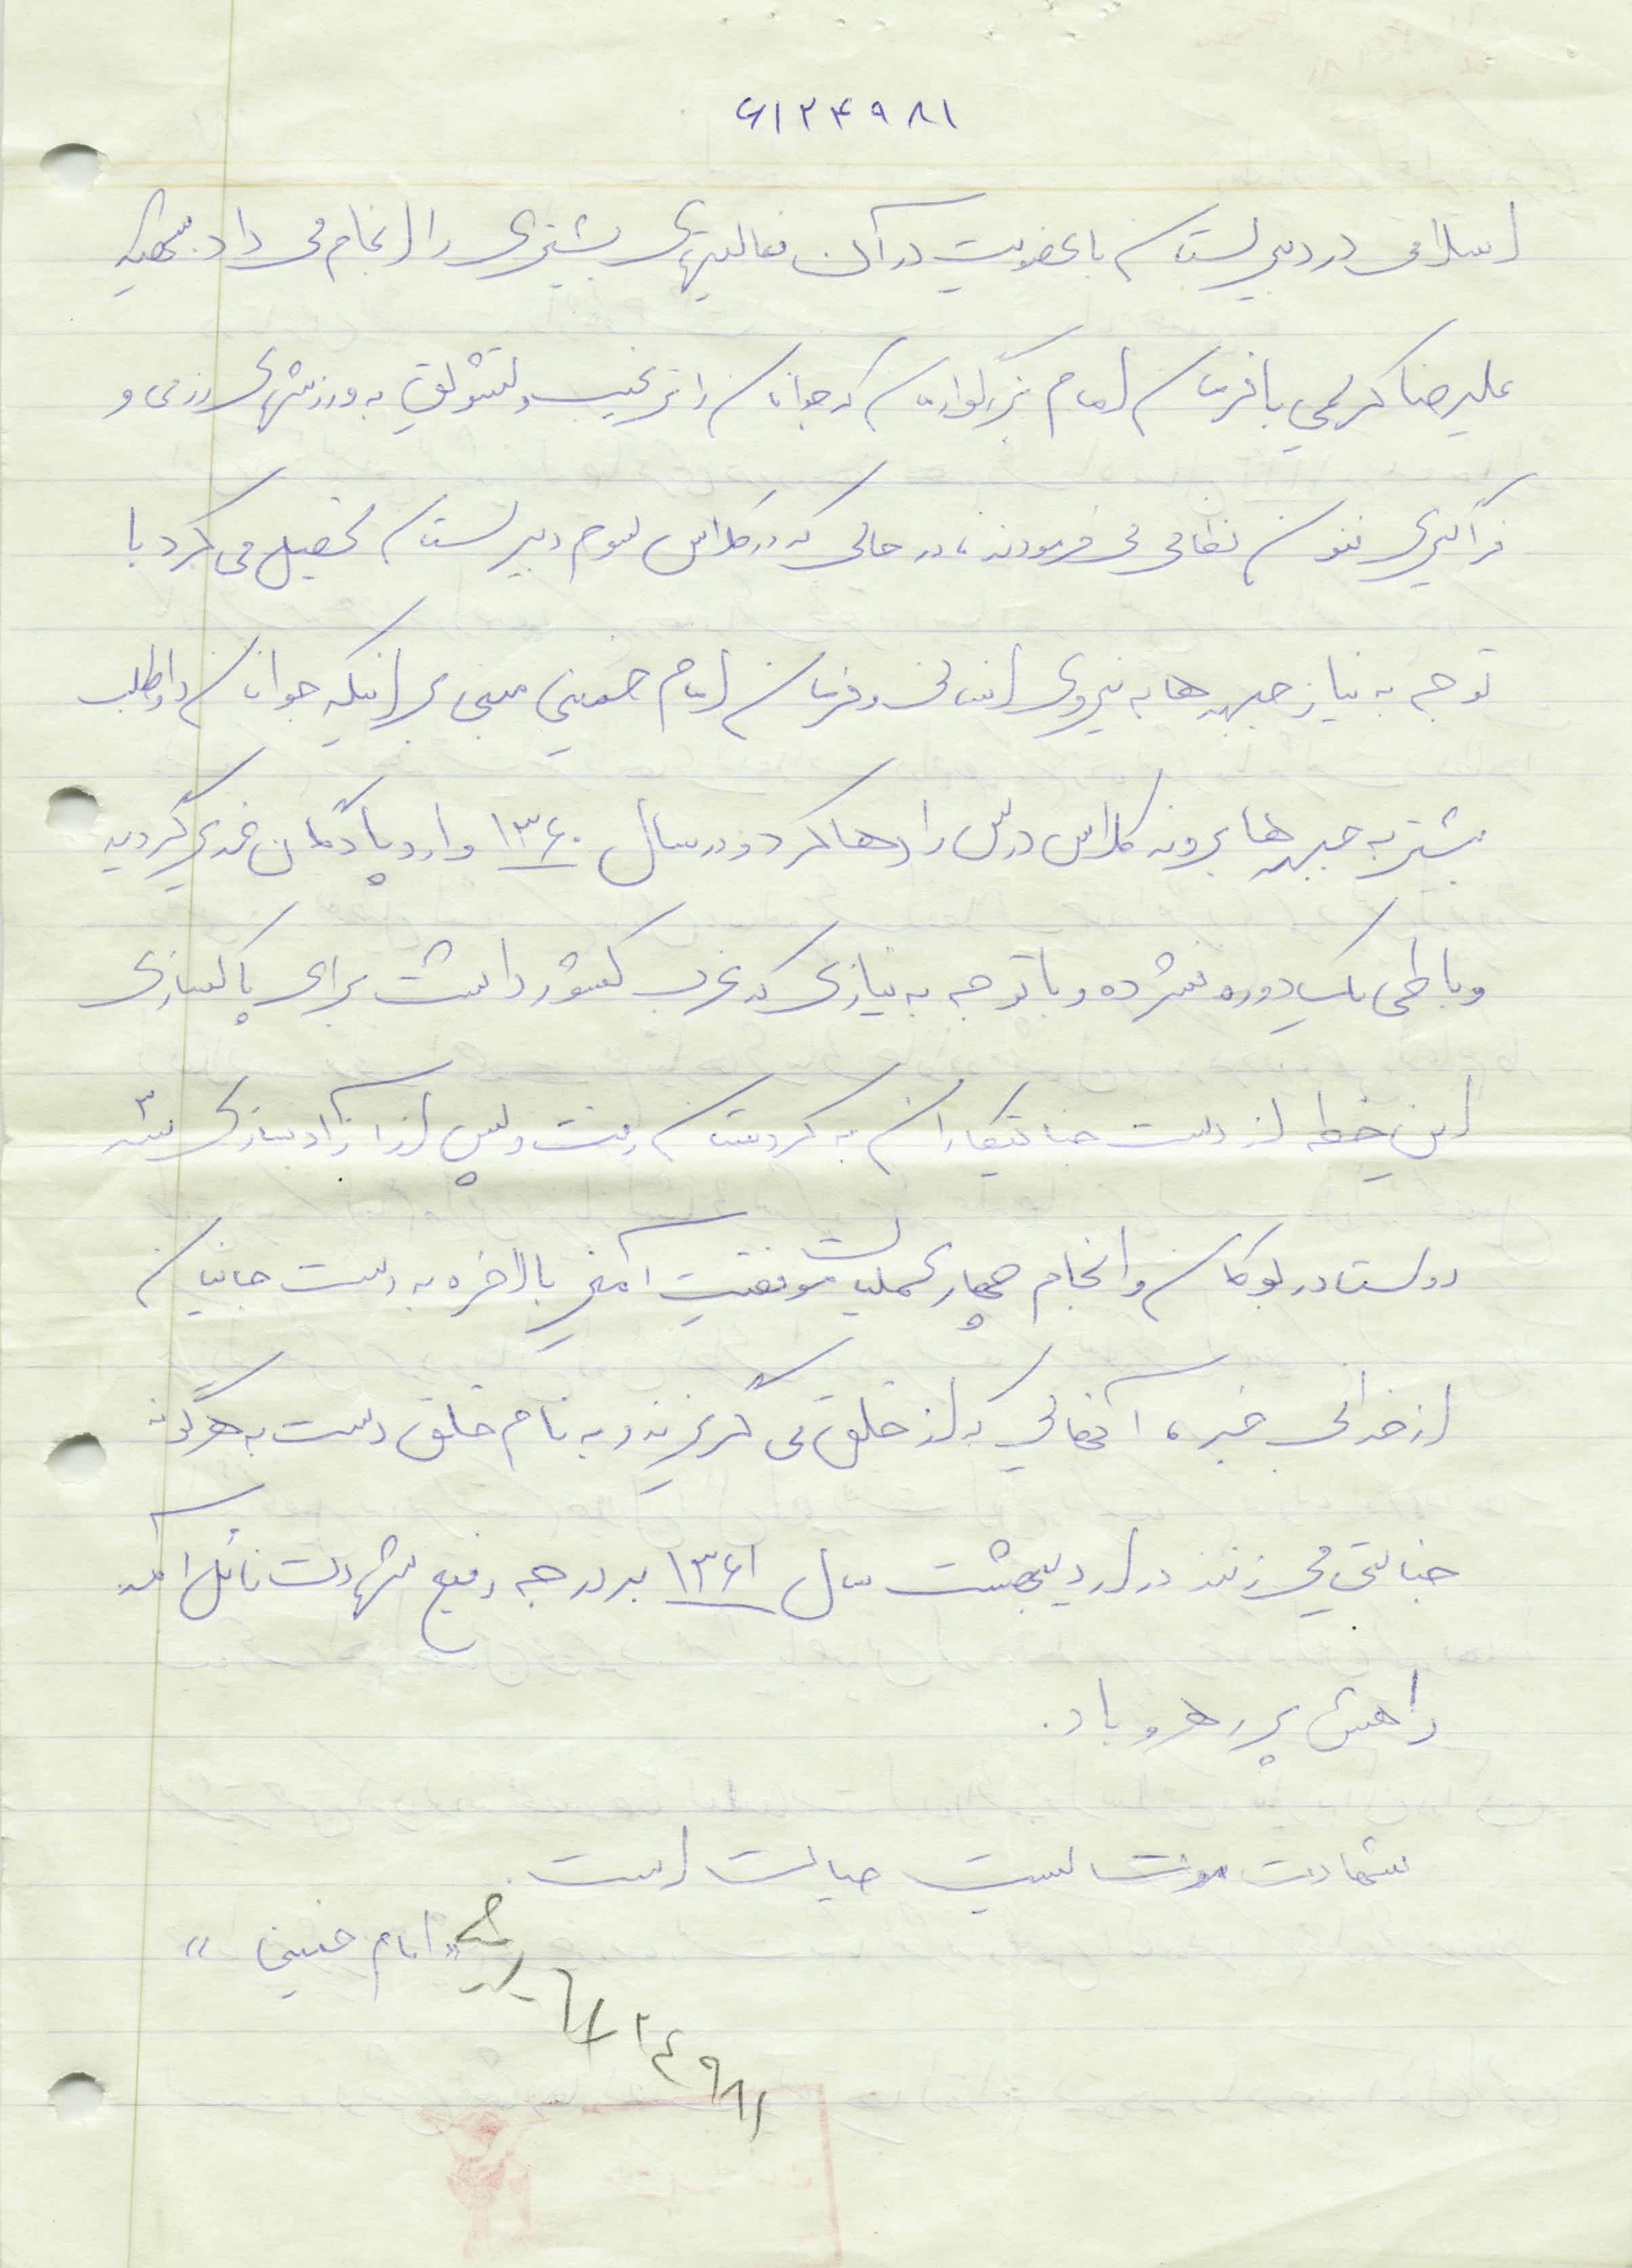 ۶۱۲۴۹۸۱
اسلامی در دبیرستان با عضویت در آن فعالیتهای بیشتری را انجام می داد. شهید
علیرضا کریمی با فرمان امام بزرگوارمان که جوانان را ترغیب و تشویق به ورزشهای رزمی و
فراگیری فنون نظامی می فرمودند، در حالی که در کلاس سوم دبیرستان تحصیل می کرد با
توجه به نیاز جبهه ها به نیروی انسانی و فرمان امام خمینی مبنی بر اینکه جوانان داوطلب
بیشتر به جبهه ها بروند کلاس درس را رها کرد و در سال ۱۳۶۰ وارد پادگان غدیر گردید
و با طی یک دوره فشرده و با توجه به نیازی که غرب کشور داشت برای پاکسازی
این خطه از دست جنایتکاران به کردستان رفت و پس از آزادسازی سه
روستا در بوکان و انجام چهار عملیات موفقیت آمیز بالاخره به دست جانیان
از خدا بی خبر، آنهائی که از خلق می گریزند و به نام خلق دست به هرگونه
جنایتی می زنند در اردیبهشت سال ۱۳۶۱ به درجه رفیع شهادت نائل آمد.
راهش پر رهرو باد.
شهادت موت نیست حیات است.
«امام خمینی»
۶۱۲۴۹۸۱